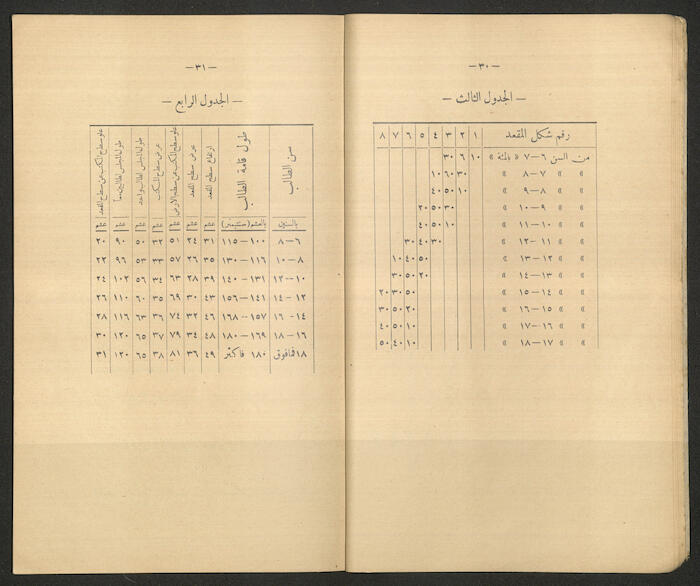 — ٣٠ —
— الجدول الثالث —
رقم شكل المقعد ١ ٢ ٣ ٤ ٥ ٦ ٧ ٨
من السن ٦—٧ « بالمئة » ١٠ ٦٠ ٣٠
» » ٧—٨ » ٣٠ ٦٠ ١٠
» » ٨—٩ » ١٠ ٥٠ ٤٠
» » ٩—١٠ » ٣٠ ٥٠ ٢٠
» » ١٠—١١ » ١٠ ٥٠ ٤٠
» » ١١—١٢ » ٣٠ ٤٠ ٣٠
» » ١٢—١٣ » ٥٠ ٤٠ ١٠
» » ١٣—١٤ » ٢٠ ٥٠ ٣٠
» » ١٤—١٥ » ٥٠ ٣٠ ٢٠
» » ١٥—١٦ » ٢٠ ٥٠ ٣٠
» » ١٦—١٧ » ١٠ ٥٠ ٤٠
» » ١٧—١٨ » ١٠ ٤٠ ٥٠
— ٣١ —
— الجدول الرابع —
سن الطالب
طول قامة الطالب
ارتفاع سطح المقعد
عرض سطح المقعد
علو سطح المكتب عن سطح الارض
عرض سطح المكتب
طول المجلس لطالب واحد
طول المجلس لطالبين معاً
علو سطح المكتب عن سطح المقعد
بالسنين بالعشم (سنتيمتر) عشم عشم عشم عشم عشم عشم عشم
٦—٨ ١٠٠—١١٥ ٣١ ٢٤ ٥١ ٣٢ ٥٠ ٩٠ ٢٠
٨—١٠ ١١٦—١٣٠ ٣٥ ٢٦ ٥٧ ٣٣ ٥٣ ٩٦ ٢٢
١٠—١٢ ١٣١—١٤٠ ٣٩ ٢٨ ٦٣ ٣٤ ٥٦ ١٠٢ ٢٤
١٢—١٤ ١٤١—١٥٦ ٤٣ ٣٠ ٦٩ ٣٥ ٦٠ ١١٠ ٢٦
١٤—١٦ ١٥٧—١٦٨ ٤٦ ٣٢ ٧٤ ٣٦ ٦٣ ١١٦ ٢٨
١٦—١٨ ١٦٩—١٨٠ ٤٨ ٣٤ ٧٩ ٣٧ ٦٥ ١٢٠ ٣٠
١٨ فمافوق ١٨٠ فاكثر ٤٩ ٣٦ ٨١ ٣٨ ٦٥ ١٢٠ ٣١